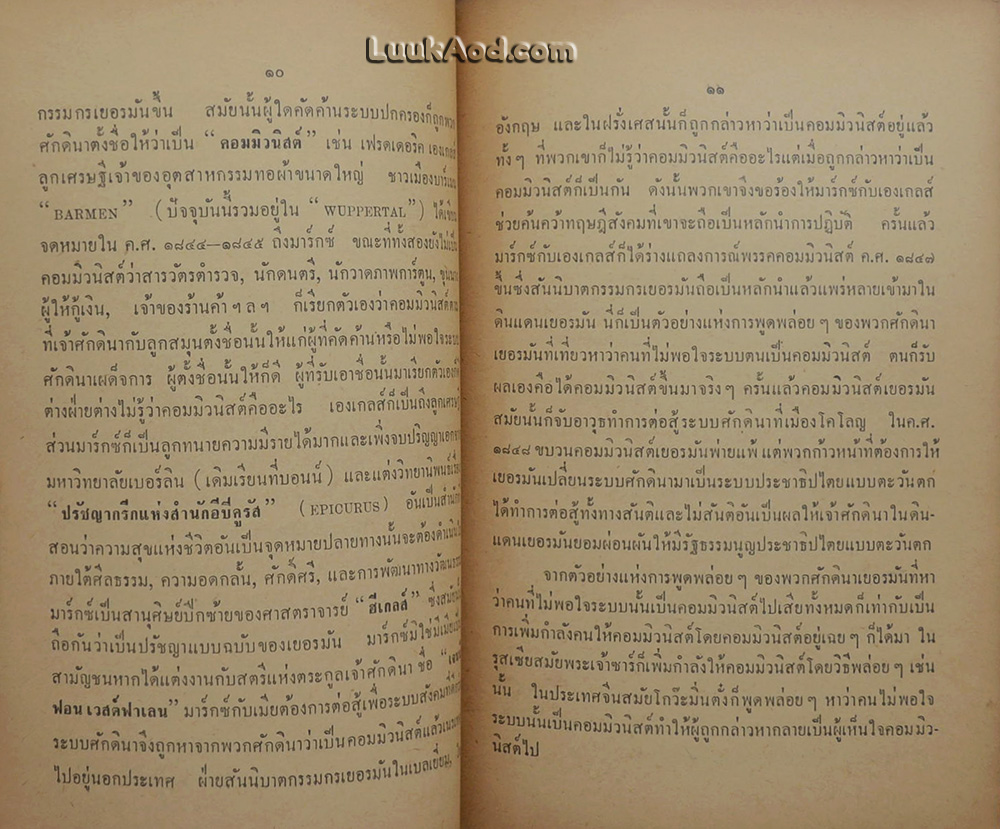 LuukAod.com
๑๐
กรรมกรเยอรมันขึ้น สมัยนั้นผู้ใดคัดค้านระบบปกครองก็ถูกพวก
ศักดินาตั้งชื่อให้ว่าเป็น “คอมมิวนิสต์” เช่น เฟรดเดอริค เองเกลส์
ลูกเศรษฐีเจ้าของอุตสาหกรรมทอผ้าขนาดใหญ่ ชาวเมืองบาร์เมน
“BARMEN” (ปัจจุบันนี้รวมอยู่ใน “WUPPERTAL”) ได้เขียน
จดหมายใน ค.ศ. ๑๘๔๔—๑๘๔๕ ถึงมาร์กซ์ ขณะที่ทั้งสองยังไม่เป็น
คอมมิวนิสต์ว่าสารวัตรตำรวจ, นักดนตรี, นักวาดภาพการ์ตูน,
ผู้ให้กู้เงิน, เจ้าของร้านค้า ฯ ล ฯ ก็เรียกตัวเองว่าคอมมิวนิสต์
ที่เจ้าศักดินากับลูกสมุนตั้งชื่อนั้นให้แก่ผู้ที่คัดค้านหรือไม่พอใจระบบ
ศักดินาเผด็จการ ผู้ตั้งชื่อนั้นให้ก็ดี ผู้ที่รับเอาชื่อนั้นมาเรียกตัวเองก็ดี
ต่างฝ่ายต่างไม่รู้ว่าคอมมิวนิสต์คืออะไร เองเกลส์ก็เป็นถึงลูกเศรษฐี
ส่วนมาร์กซ์ก็เป็นลูกทนายความมีรายได้มากและเพิ่งจบปริญญาเอกจาก
มหาวิทยาลัยเบอร์ลิน (เดิมเรียนที่บอนน์) และแต่งวิทยานิพนธ์เรื่อง
“ปรัชญากรีกแห่งสำนักอีปีคูรัส” (EPICURUS) อันเป็นสำนักที่
สอนว่าความสุขแห่งชีวิตอันเป็นจุดหมายปลายทางนั้นจะต้องดำเนินไป
ภายใต้ศีลธรรม, ความอดกลั้น, ศักดิ์ศรี, และการพัฒนาทางวัฒนธรรม
มาร์กซ์เป็นสานุศิษย์ปีกซ้ายของศาสตราจารย์ “ฮีเกลส์” ซึ่งสมัยนั้น
ถือกันว่าเป็นปรัชญาแบบฉบับของเยอรมัน มาร์กซ์มิใช่มีเมียเป็น
สามัญชนหากได้แต่งงานกับสตรีแห่งตระกูลเจ้าศักดินา ชื่อ
ฟอน เวสต์ฟาเลน” มาร์กซ์กับเมียต้องการต่อสู้เพื่อระบบสังคมที่ดีกว่า
ระบบศักดินาจึงถูกหาจากพวกศักดินาว่าเป็นคอมมิวนิสต์แล้วเนรเทศ
ไปอยู่นอกประเทศ ฝ่ายสันนิบาตกรรมกรเยอรมันในเบลเยี่ยม,
๑๑
อังกฤษ และในฝรั่งเศสนั้นก็ถูกกล่าวหาว่าเป็นคอมมิวนิสต์อยู่แล้ว
ทั้ง ๆ ที่พวกเขาก็ไม่รู้ว่าคอมมิวนิสต์คืออะไรแต่เมื่อถูกกล่าวหาว่าเป็น
คอมมิวนิสต์ก็เป็นกัน ดังนั้นพวกเขาจึงขอร้องให้มาร์กซ์กับเองเกลส์
ช่วยค้นคว้าทฤษฎีสังคมที่เขาจะถือเป็นหลักนำการปฏิบัติ ครั้นแล้ว
มาร์กซ์กับเองเกลส์ก็ได้ร่างแถลงการณ์พรรคคอมมิวนิสต์ ค.ศ. ๑๘๔๗
ขึ้นซึ่งสันนิบาตกรรมกรเยอรมันถือเป็นหลักนำแล้วแพร่หลายเข้ามาใน
ดินแดนเยอรมัน นี่ก็เป็นตัวอย่างแห่งการพูดพล่อย ๆ ของพวกศักดินา
เยอรมันที่เที่ยวหาว่าคนที่ไม่พอใจระบบตนเป็นคอมมิวนิสต์ ตนก็รับ
ผลเองคือได้คอมมิวนิสต์ขึ้นมาจริง ๆ ครั้นแล้วคอมมิวนิสต์เยอรมัน
สมัยนั้นก็จับอาวุธทำการต่อสู้ระบบศักดินาที่เมืองโคโลญ ในค.ศ.
๑๘๔๘ ขบวนคอมมิวนิสต์เยอรมันพ่ายแพ้ แต่พวกก้าวหน้าที่ต้องการให้
เยอรมันเปลี่ยนระบบศักดินามาเป็นระบบประชาธิปไตยแบบตะวันตก
ได้ทำการต่อสู้ทั้งทางสันติและไม่สันติอันเป็นผลให้เจ้าศักดินาในดิน-
แดนเยอรมันยอมผ่อนผันให้มีรัฐธรรมนูญประชาธิปไตยแบบตะวันตก
จากตัวอย่างแห่งการพูดพล่อย ๆ ของพวกศักดินาเยอรมันที่หา
ว่าคนที่ไม่พอใจระบบนั้นเป็นคอมมิวนิสต์ไปเสียทั้งหมดก็เท่ากับเป็น
การเพิ่มกำลังคนให้คอมมิวนิสต์โดยคอมมิวนิสต์อยู่เฉย ๆ ก็ได้มา ใน
รุสเซียสมัยพระเจ้าซาร์ก็เพิ่มกำลังให้คอมมิวนิสต์โดยวิธีพล่อย ๆ เช่น
นั้น ในประเทศจีนสมัยโกว๊ะมินตั๋งก็พูดพล่อย ๆ หาว่าคนไม่พอใจ
ระบบนั้นเป็นคอมมิวนิสต์ทำให้ผู้ถูกกล่าวหากลายเป็นผู้เห็นใจคอมมิว-
นิสต์ไป